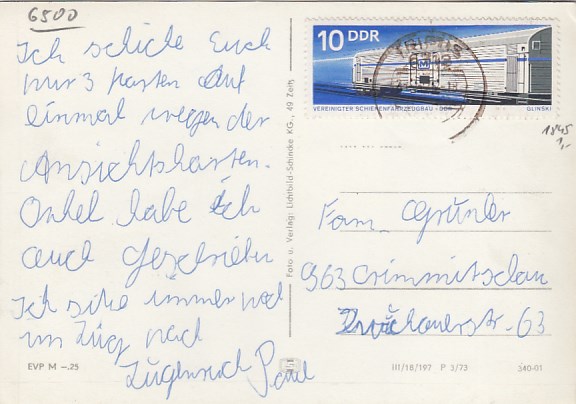 6500
Ich schicke Euch
nur 3 Karten Auf
einmal wegen der
Ansichtskarten.
Onkel habe ich
auch Geschrieben
Ich sitze immer noch
im Zug nach
Paul
EVP M –.25
Foto u. Verlag: Lichtbild-Schincke KG., 49 Zeitz
10 DDR
VEREINIGTER SCHIENENFAHRZEUGBAU - DDR
GLINSKI
1845
1,-
Fam. Grünler
963 Crimmitschau
-str. 63
III/18/197 P 3/73 340-01